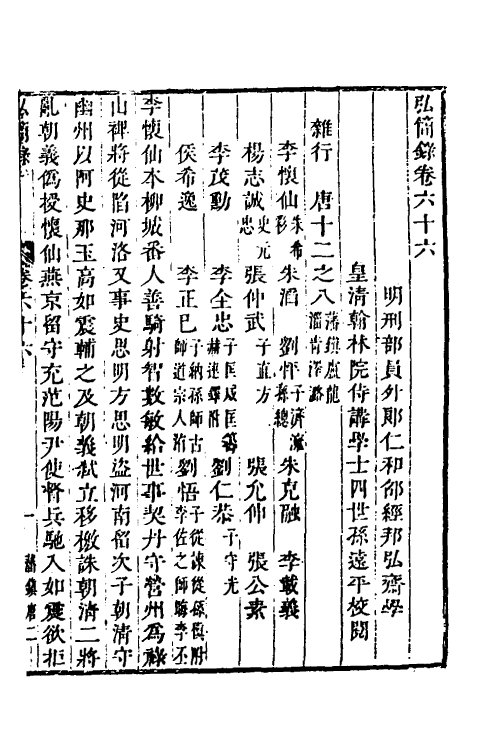 弘簡錄卷六十六
明刑部員外郎仁和邵經邦弘齋學
皇清翰林院侍講學士四世孫遠平校閱
雜行 唐十二之八 藩鎮盧龍淄青澤潞
李懷仙 朱希彩 朱滔 劉怦 子濟 濟子總 朱克融 李載義
楊志誠 史元忠 張仲武 子直方 張允伸 張公素
李茂勳 李全忠 子匡威 匡籌 劉仁恭 子守光
侯希逸 李正巳 子納 孫師古 師道 宗人洧 劉悟 子從諫 從孫稹附 李佐之 師晦 李丕
李懷仙本柳城番人善騎射智數敏給世事契丹守營州爲祿
山裨將從陷河洛又事史思明方思明盜河南留次子朝清守
幽州以阿史那玉高如震輔之及朝義弑立移檄誅朝清二將
亂朝義僞授懷仙燕京留守充范陽尹使督兵馳入如震欲拒
弘簡錄 卷六十六 一 藩鎮唐二